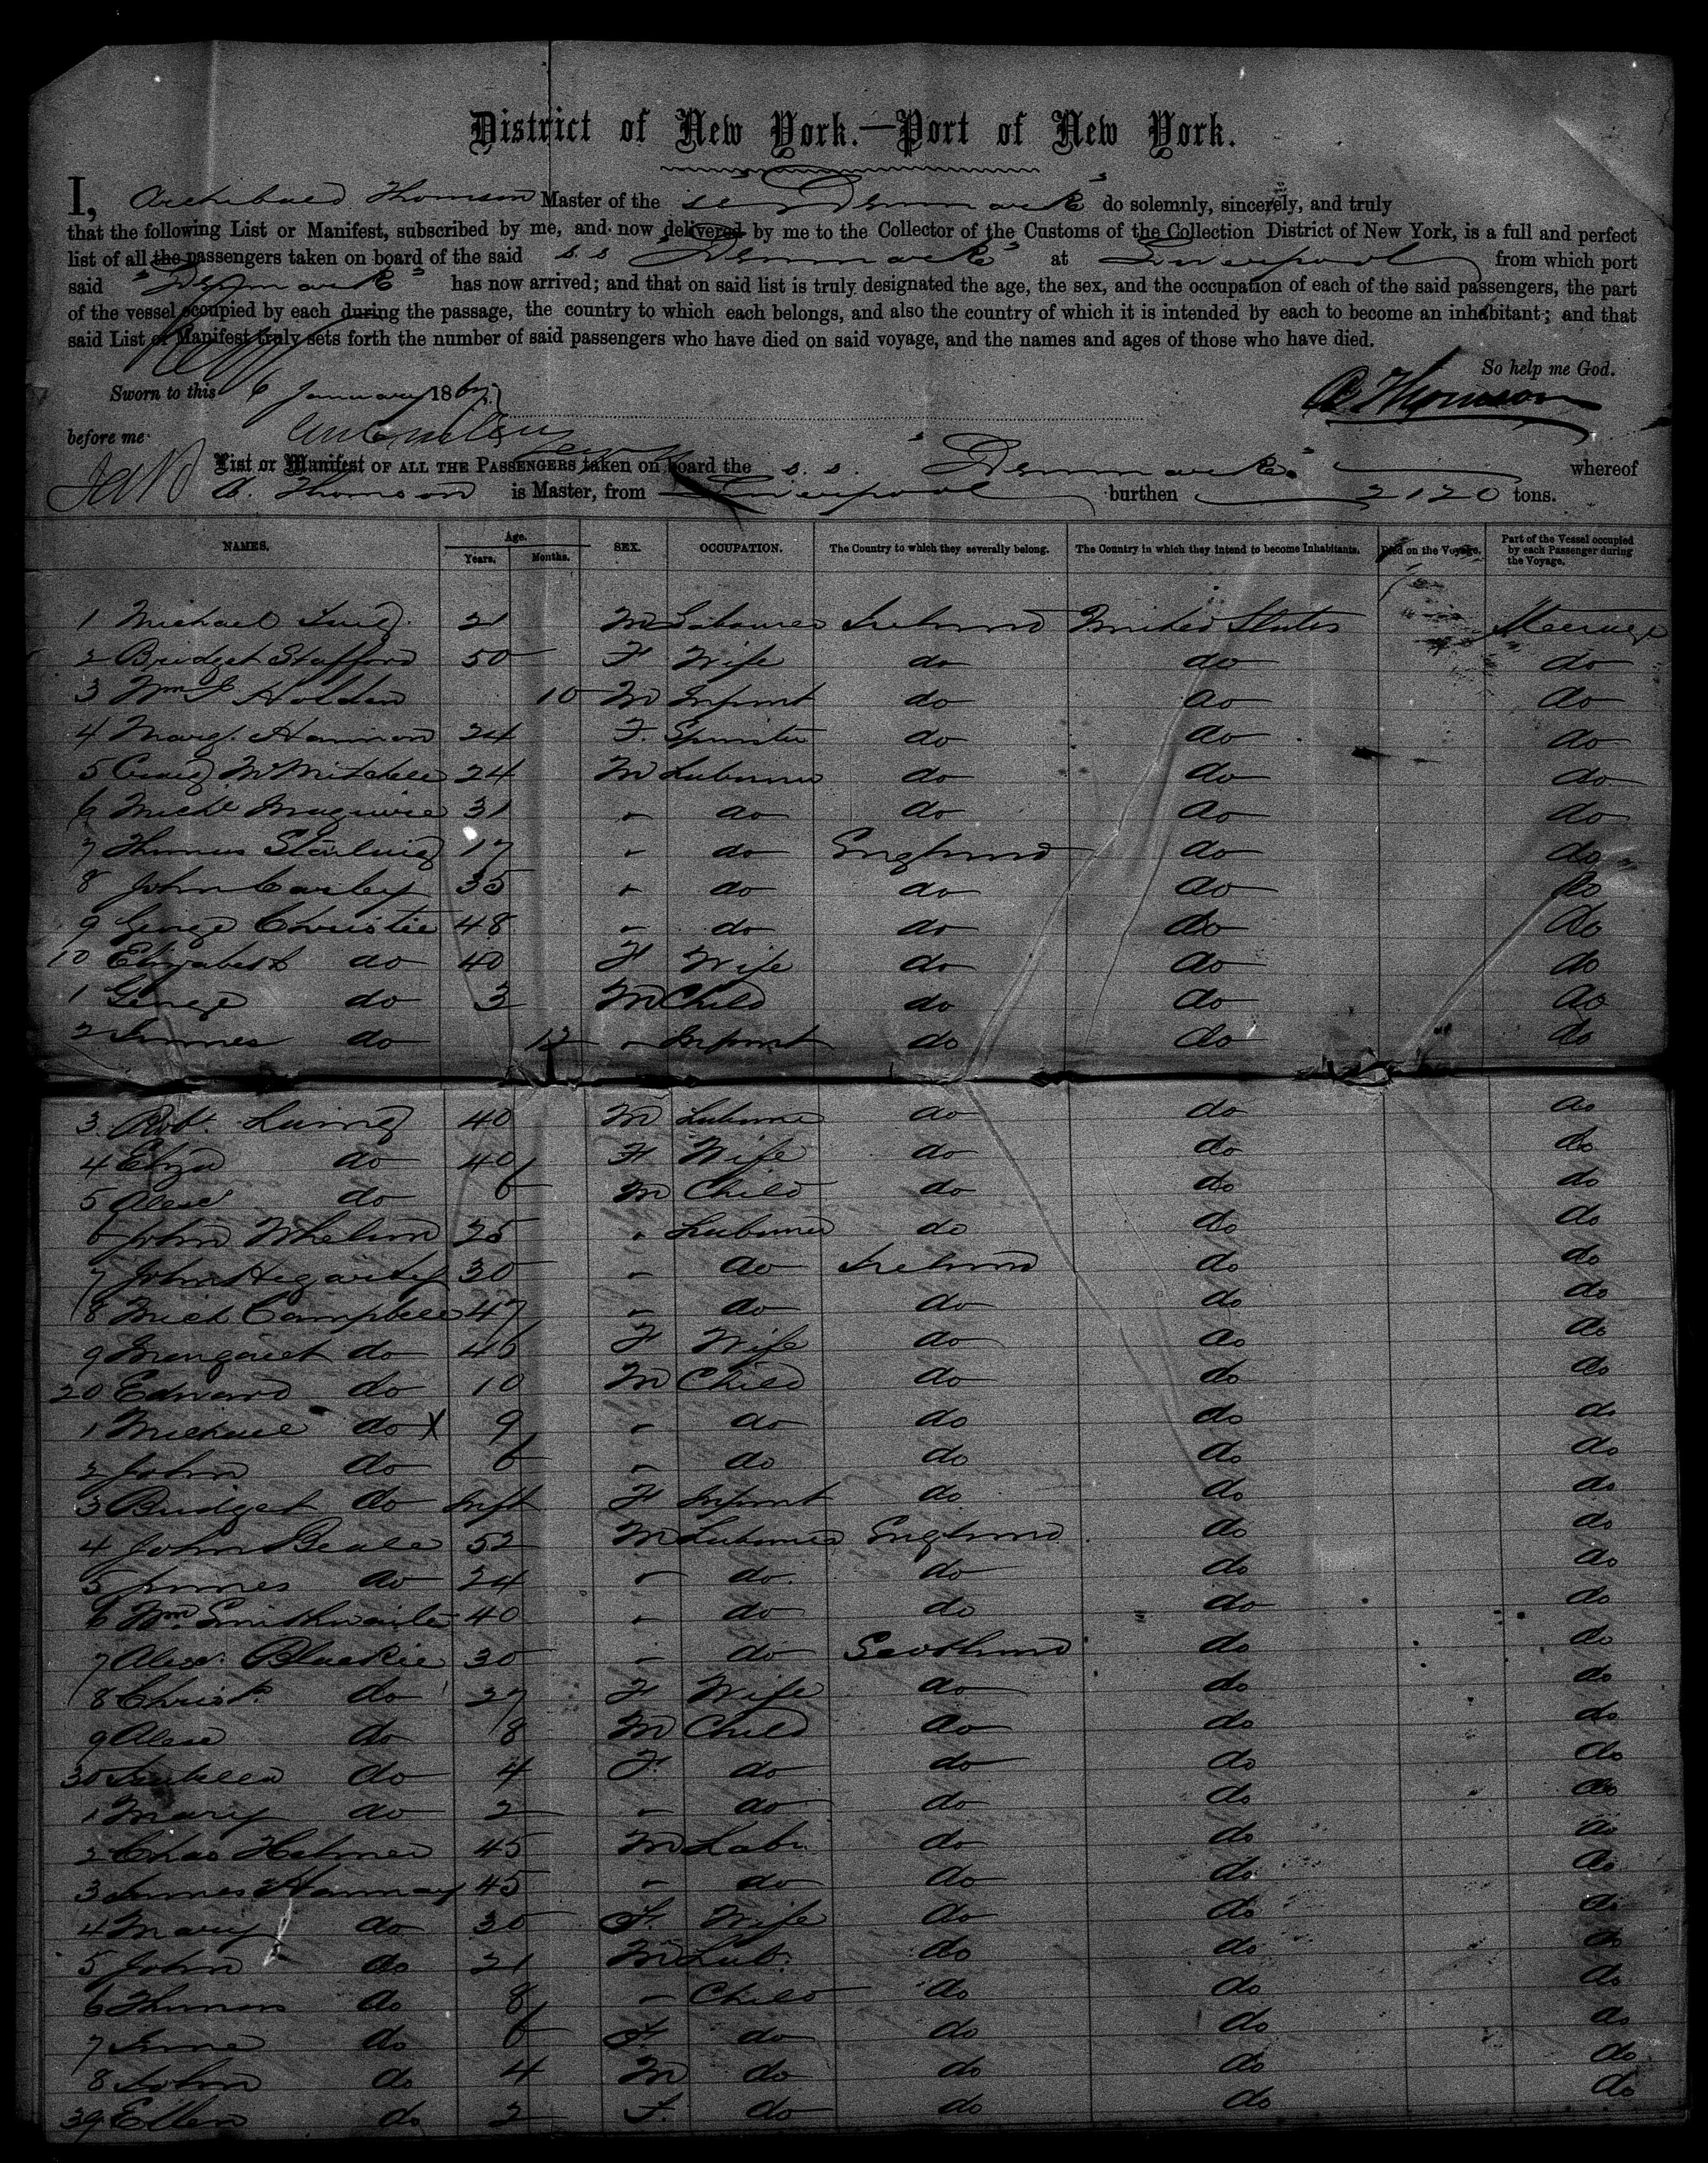 District of New York.—Port of New York.
I, Archibald Thomson Master of the ss "Denmark" do solemnly, sincerely, and truly
that the following List or Manifest, subscribed by me, and now delivered by me to the Collector of the Customs of the Collection District of New York, is a full and perfect
list of all the passengers taken on board of the said s.s "Denmark" at Liverpool from which port
said "Denmark" has now arrived; and that on said list is truly designated the age, the sex, and the occupation of each of the said passengers, the part
of the vessel occupied by each during the passage, the country to which each belongs, and also the country of which it is intended by each to become an inhabitant; and that
said List or Manifest truly sets forth the number of said passengers who have died on said voyage, and the names and ages of those who have died.
So help me God.
Sworn to this 6 January 1867 A Thomson
before me
List or Manifest OF ALL THE PASSENGERS taken on board the s.s. "Denmark" whereof
A. Thomson is Master, from Liverpool burthen 2120 tons.
NAMES. Age. Years. Months. SEX. OCCUPATION. The Country to which they severally belong. The Country in which they intend to become Inhabitants. Died on the Voyage. Part of the Vessel occupied by each Passenger during the Voyage.
1 Michael 21 M Labourer Ireland United States Steerage
2 Bridget Stafford 50 F Wife do do do
3 Wm Holden 10 M Infant do do do
4 Marg. Hannon 24 F. Spinster do do do
5 Craig McMitchell 24 M Labourer do do do
6 Michl Maguire 31 " do do do do
7 Thomas Starling 17 " do England do do
8 John Carley 35 " do do do do
9 George Christie 48 " do do do do
10 Elizabeth do 40 F Wife do do do
1 George do 3 M Child do do do
2 James do 12 " Infant do do do
3 Robt. Laing 40 M Labourer do do do
4 Eliza do 40 F Wife do do do
5 Alexr do 6 M Child do do do
6 John Whelan 25 " Labourer do do do
7 John Hegarty 30 " do Ireland do do
8 Mich Campbell 47 " do do do do
9 Margaret do 46 F Wife do do do
20 Edward do 10 M Child do do do
1 Michael do X 9 " do do do do
2 John do 6 " do do do do
3 Bridget do Inft F Infant do do do
4 John Beale 52 M Labourer England do do
5 James do 24 " do do do do
6 Wm. Smithwaite 40 " do do do do
7 Alexr. Blackie 30 " do Scotland do do
8 Christ. do 27 F Wife do do do
9 Alexr do 8 M Child do do do
30 Isabella do 4 F. do do do do
1 Mary do 2 " do do do do
2 Chas Holmes 45 M Labr. do do do
3 James Hannay 45 " do do do do
4 Mary do 30 F. Wife do do do
5 John do 21 M Lab. do do do
6 Thomas do 8 " Child do do do
7 Jane do 6 F. do do do do
8 John do 4 M do do do do
39 Ellen do 2 F. do do do do